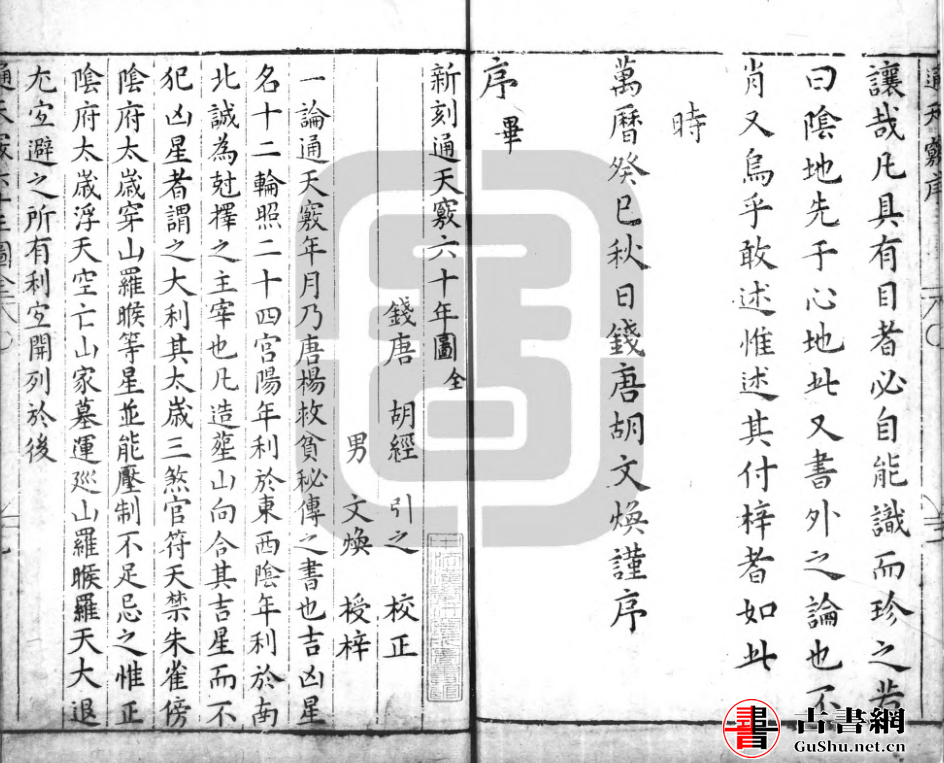 讓哉凡具有目者必自能識而珍之若
曰陰地先于心地此又書外之論也不
肖又烏乎敢述惟述其付梓者如此
時
萬曆癸巳秋日錢唐胡文煥謹序
序畢
新刻通天竅六十年圖全
錢唐 胡經 引之 校正
男 文煥 授梓
一論通天竅年月乃唐楊救貧秘傳之書也吉凶星
名十二輪照二十四宮陽年利於東西陰年利於南
北誠為尅擇之主宰也凡造塟山向合其吉星而不
犯凶星者謂之大利其太歲三煞官符天禁朱雀傍
陰府太歲穿山羅睺等星並能壓制不足忌之惟正
陰府太歲浮天空亡山家墓運廵山羅睺羅天大退
尤宐避之所有利宐開列於後
書 古書網
GuShu.net.cn